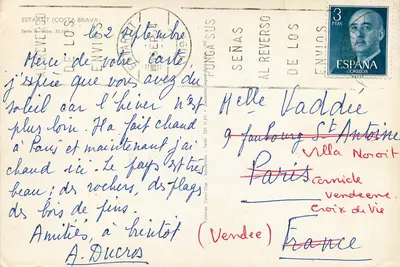 ESTARTIT (COSTA BRAVA)
le 2 septembre
Merci de votre carte,
j'espère que vous avez du
soleil car l'hiver n'est
plus loin. Il a fait chaud
à Paris et maintenant j'ai
chaud ici. Le pays est très
beau ; des rochers, des plages
des bois de pins.
Amitiés, à bientôt
A. Ducros
PONGA SUS
SEÑAS
AL REVERSO
DE LOS
ENVIOS
3
PTAS
ESPAÑA
CORREOS
Melle Vaddié
9 faubourg St Antoine
Villa Noroit
Paris
Corniche
Vendéenne
Croix de Vie
(Vendée)
France